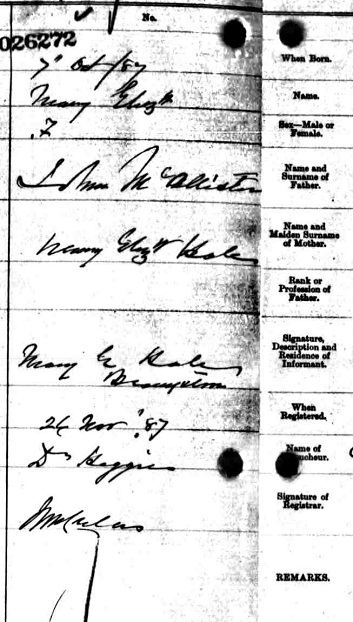 No.
026272
When Born.
7" Oct/87
Name.
Mary Elizth
Sex—Male or
Female.
F
Name and
Surname of
Father.
John McAllister
Name and
Maiden Surname
of Mother.
Mary Elizth
Rank or
Profession of
Father.
Signature,
Description and
Residence of
Informant.
Mary E
When
Registered.
26 Nov '87
Name of
ucheur.
Dr Heggie
Signature of
Registrar.
REMARKS.